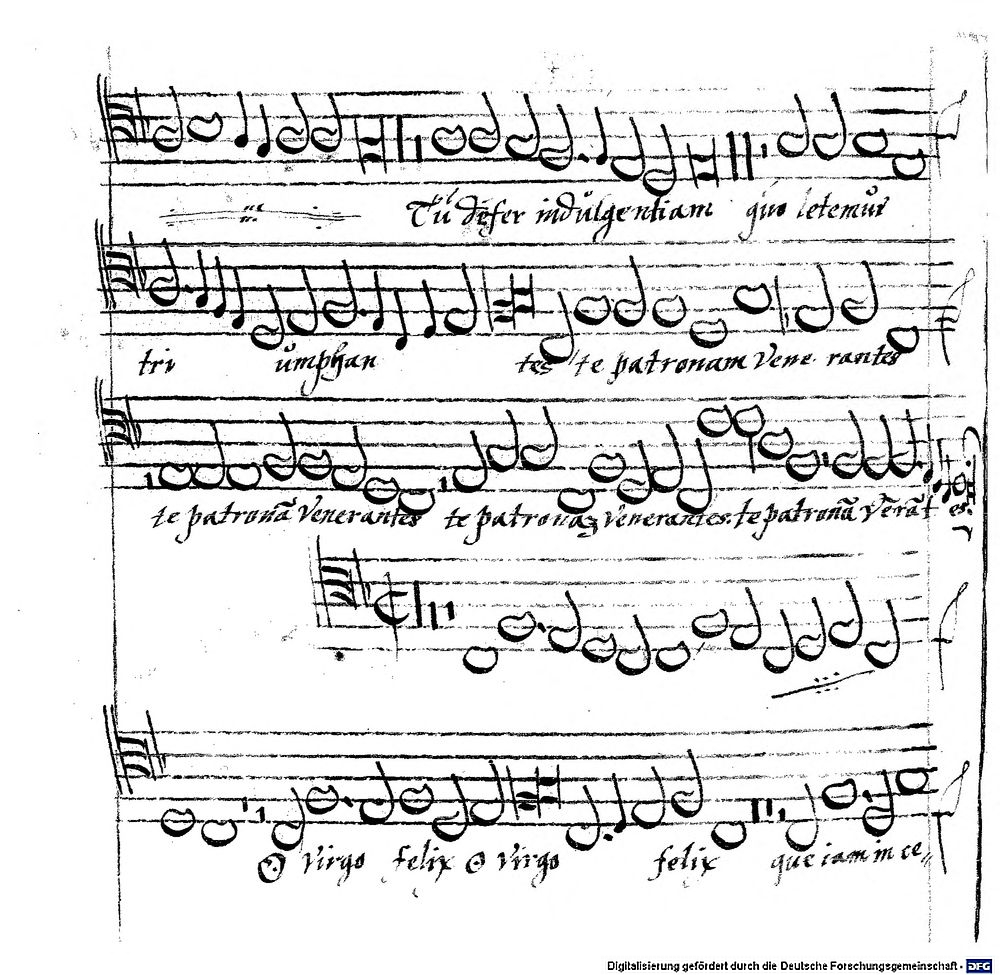 Tu defer indulgentiam quo letemur
tri umphan tes te patronam Vene rantes
te patronã Venerantes te patronaʒ Venerantes. te patronã Vẽrãt es.
O Virgo felix O Virgo felix que iam in ce,,
Digitalisierung gefördert durch die Deutsche Forschungsgemeinschaft - DFG